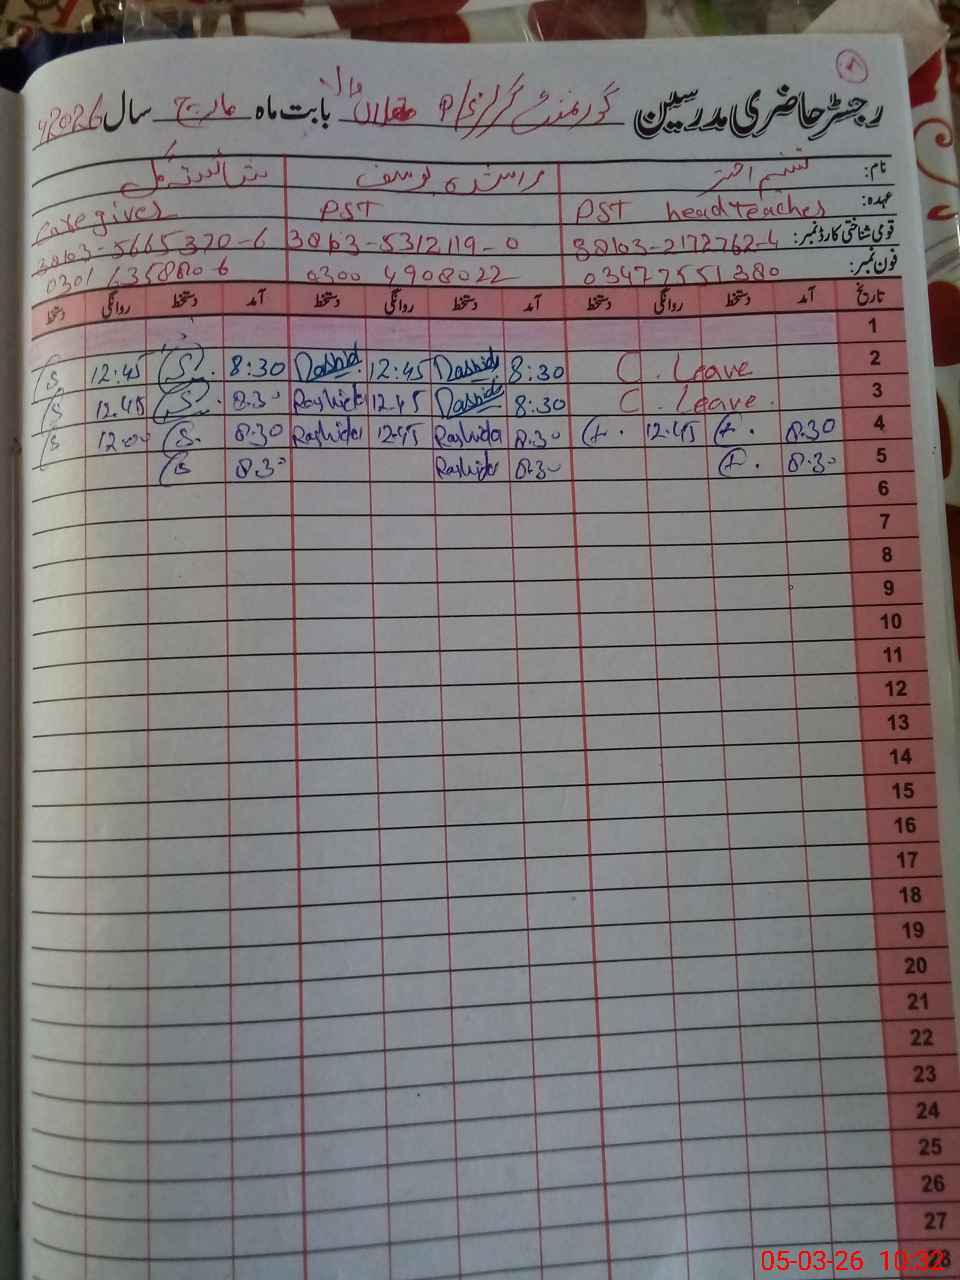 رجسٹر حاضری مدرسین گورنمنٹ گرلز P/ بابت ماہ مارچ سال 2026ء
نام: تسنیم اختر راشدہ یوسف شائستہ گل
عہدہ: PST head teacher PST Care giver
قومی شناختی کارڈ نمبر: 38103-2172762-4 38103-5312119-0 38103-5665370-6
فون نمبر: 03477551380 0300 4908022 0301
تاریخ آمد دستخط روانگی دستخط آمد دستخط روانگی دستخط آمد دستخط روانگی دستخط
1
2 C. Leave 8:30 Rashida 12:45 Rashida 8:30 S. 12:45 S
3 C. Leave. 8:30 Rashida 12.45 Rashida 8.30 S. 12.45 S
4 8.30 t. 12.45 t. 8.30 Rashida 12.45 Rashida 8.30 S. S
5 8.30 t. 8.30 Rashida 8.30 S
6
7
8
9
10
11
12
13
14
15
16
17
18
19
20
21
22
23
24
25
26
27
28
05-03-26 10:32